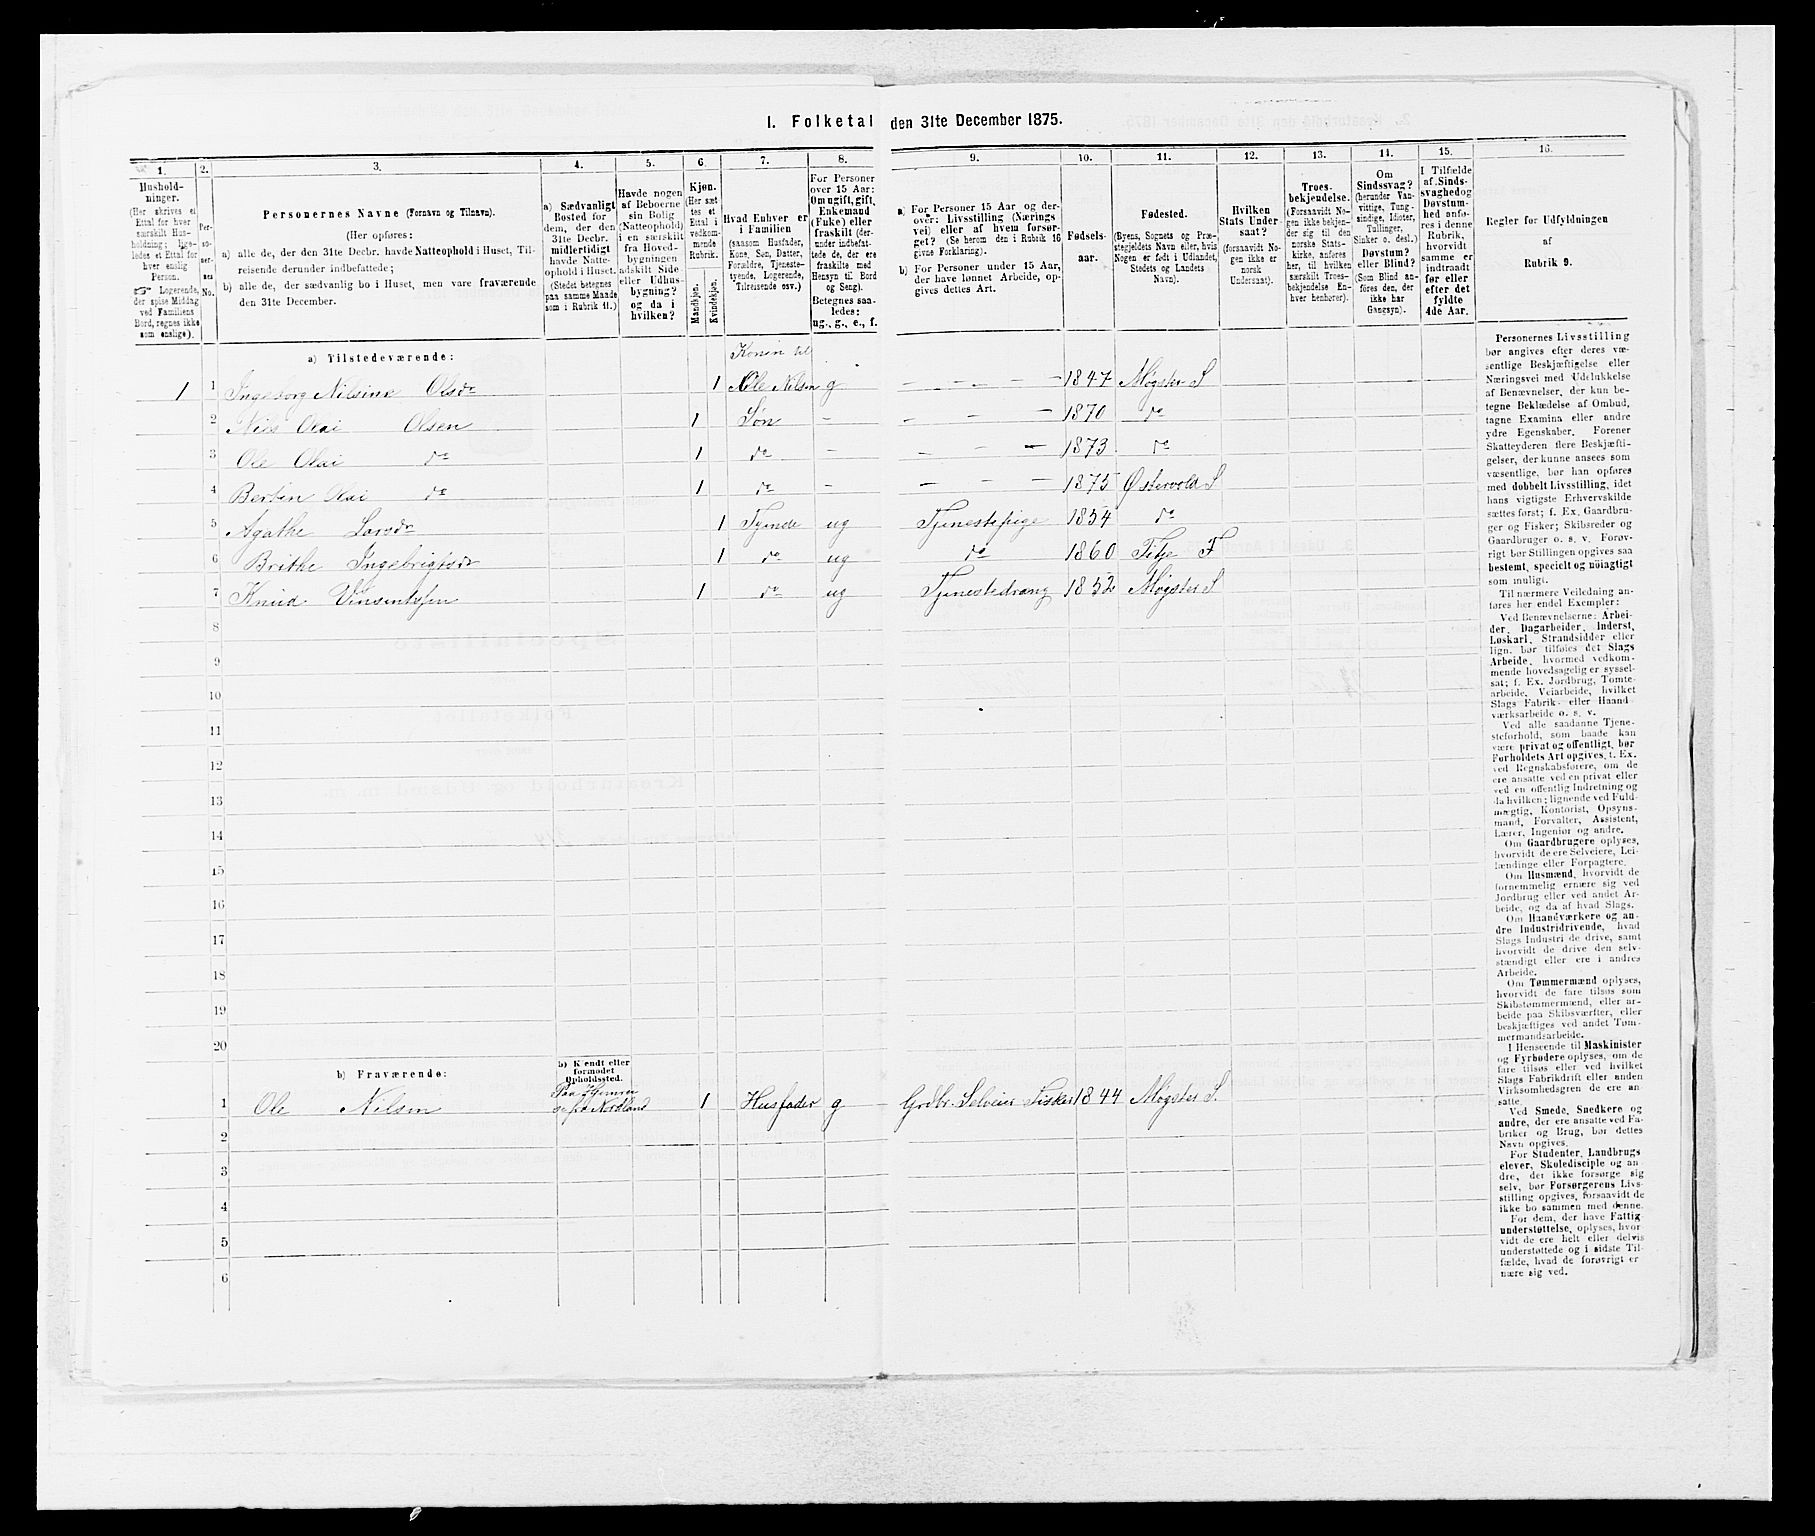 I. Folketal den 31te December 1875.
1. 2. 3. 4. 5. 6. 7. 8. 9. 10. 11. 12. 13. 14. 15. 16.
Husholdninger.
(Her skrives et
Ettal for hver
særskilt Husholdning;
ligeledes et Ettal for
hver enslig
Person.
Logerende,
der spise Middag
ved Familiens
Bord, regnes ikke
som enslige).
Personernes
No.
Personernes Navne (Fornavn og Tilnavn).
(Her opføres:
a) alle de, der den 31te Decbr. havde Natteophold i Huset, Tilreisende derunder indbefattede;
b) alle de, der sædvanlig bo i Huset, men vare fraværende
den 31te December.
a) Sædvanligt
Bosted for
dem, der den
31te Decbr.
midlertidigt
havde Natteophold i Huset.
(Stedet betegnes
paa samme Maade
som i Rubrik 11.)
Havde nogen
af Beboerne
sin Bolig
(Natteophold)
i en særskilt
fra Hovedbygningen
adskilt Side- eller Udhusbygning?
og da i
hvilken?
Kjøn.
(Her sættes et
Ettal i
vedkommende
Rubrik.
Mandkjøn.
Kvindekjøn.
Hvad Enhver er
i Familien
(saasom Husfader,
Kone, Søn, Datter,
Forældre, Tjenestetyende, Logerende,
Tilreisende osv.)
For Personer
over 15 Aar:
Om ugift, gift,
Enkemand
(Enke) eller
fraskilt (derunder indbefattede de, der ere
fraskilte med
Hensyn til Bord
og Seng).
Betegnes saaledes:
ug., g., e., f.
a) For Personer 15 Aar og derover: Livsstilling (Næringsvei) eller af hvem forsørget? (Se herom den i Rubrik 16
givne Forklaring).
b) For Personer under 15 Aar,
der have lønnet Arbeide, opgives dettes Art.
Fødselsaar.
Fødested.
(Byens, Sognets og Præstegjeldets Navn eller, hvis
Nogen er født i Udlandet,
Stedets og Landets
Navn).
Hvilken
Stats Undersaat?
(forsaavidt Nogen ikke er
norsk
Undersaat).
Troesbekjendelse.
(Forsaavidt Nogen ikke bekjender sig til den
norske Statskirke, anføres
her, til hvilken
særskilt Troesbekjendelse Enhver henhører).
Om
Sindssvag?
(herunder Vanvittige, Tungsindige, Idioter,
Tullinger,
Sinker o. desl.)
Døvstum?
eller Blind?
(Som Blind anføres den, der
ikke har
Gangsyn).
I Tilfælde
af Sindssvaghed og
Døvstumhed anføres i denne
Rubrik,
hvorvidt
samme er
indtraadt
før eller
efter det
fyldte
4de Aar.
Regler for Udfyldningen
af
Rubrik 9.
a) Tilstedeværende:
Konen til
1 1 Ingeborg Nilsine Olsdr 1 Ole Nilsen g – – – – – 1847 Møgster S
2 Nils Olai Olsen 1 Søn – – – – 1870 do
3 Ole Olai do 1 do – – – – 1873 do
4 Berten Olai do 1 do – – – – 1875 Østervold S
5 Agathe Larsdr 1 Tyende ug Tjenestepige 1854 do
6 Brithe Ingebrigtsdr 1 do ug do 1860 F
7 Knud Vinsentssen 1 do ug Tjenestedreng 1852 Møgster S
8
9
10
11
12
13
14
15
16
17
18
19
20
b) Fraværende:
b) Kjendt eller
formodet
Opholdssted.
Paa Hjemrei
se fra Nordland
1 Ole Nilsen 1 Husfader g Grdbr. Selveier Fisker 1844 Møgster S.
2
3
4
5
6
Personernes Livsstilling
bør angives efter deres væsentlige Beskjæftigelse eller
Næringsvei med Udelukkelse
af Benævnelser, der kun betegne Beklædelse af Ombud,
tagne Examina eller andre
ydre Egenskaber. Forener
Skatteyderen flere Beskjæftigelser, der kunne ansees som
væsentlige, bør han opføres
med dobbelt Livsstilling, idet
hans vigtigste Erhvervskilde
sættes først; f. Ex. Gaardbruger og Fisker; Skibsreder og
Gaardbruger o. s. v. Forøvrigt bør Stillingen opgives saa
bestemt, specielt og nøiagtigt
som muligt.
Til nærmere Veiledning anføres her endel Exempler:
Ved Benævnelserne: Arbeider, Dagarbeider, Inderst,
Løskarl, Strandsidder eller
lign. bør tilføies det Slags
Arbeide, hvormed vedkommende hovedsagelig er sysselsat; f. Ex. Jordbrug, Tomtearbeide, Veiarbeide, hvilket
Slags Fabrik- eller Haandværksarbeide o. s. v.
Ved alle saadanne Tjenesteforhold, som baade kan
være privat og offentligt, bør
Forholdets Art opgives, f. Ex.
ved Regnskabsførere, om de
ere ansatte ved en privat eller
ved en offentlig Indretning og
da hvilken; lignende ved Fuldmægtig, Kontorist, Opsynsmand, Forvalter, Assistent,
Lærer, Ingeniør og andre.
Om Gaardbrugere oplyses,
hvorvidt de ere Selveiere, Leilændinge eller Forpagtere.
Om Husmænd, hvorvidt de
fornemmelig ernære sig ved
Jordbrug eller ved andet Arbeide, og da af hvad Slags.
Om Haandværkere og andre Industridrivende, hvad
Slags Industri de drive, samt
hvorvidt de drive den selvstændigt eller ere i andres
Arbeide.
Om Tømmermænd oplyses,
hvorvidt de fare tilsøs som
Skibstømmermænd, eller arbeide paa Skibsværfter, eller
beskjæftiges ved andet Tømmermandsarbeide.
I Henseende til Maskinister
og Fyrbødere oplyses, om de
fare tilsøs eller ved hvilket
Slags Fabrikdrift eller anden
Virksomhedsgren de ere ansatte.
Ved Smede, Snedkere og
andre, der ere ansatte ved Fabriker og Brug, bør dettes
Navn opgives.
For Studenter, Landbrugselever, Skoledisciple og andre, der ikke forsørge sig
selv, bør Forsørgerens Livsstilling opgives, forsaavidt de
ikke bo sammen med denne.
For dem, der have Fattigunderstøttelse, oplyses, hvorvidt de ere helt eller delvis
understøttede og i sidste Tilfælde, hvad de forøvrigt ernære sig ved.